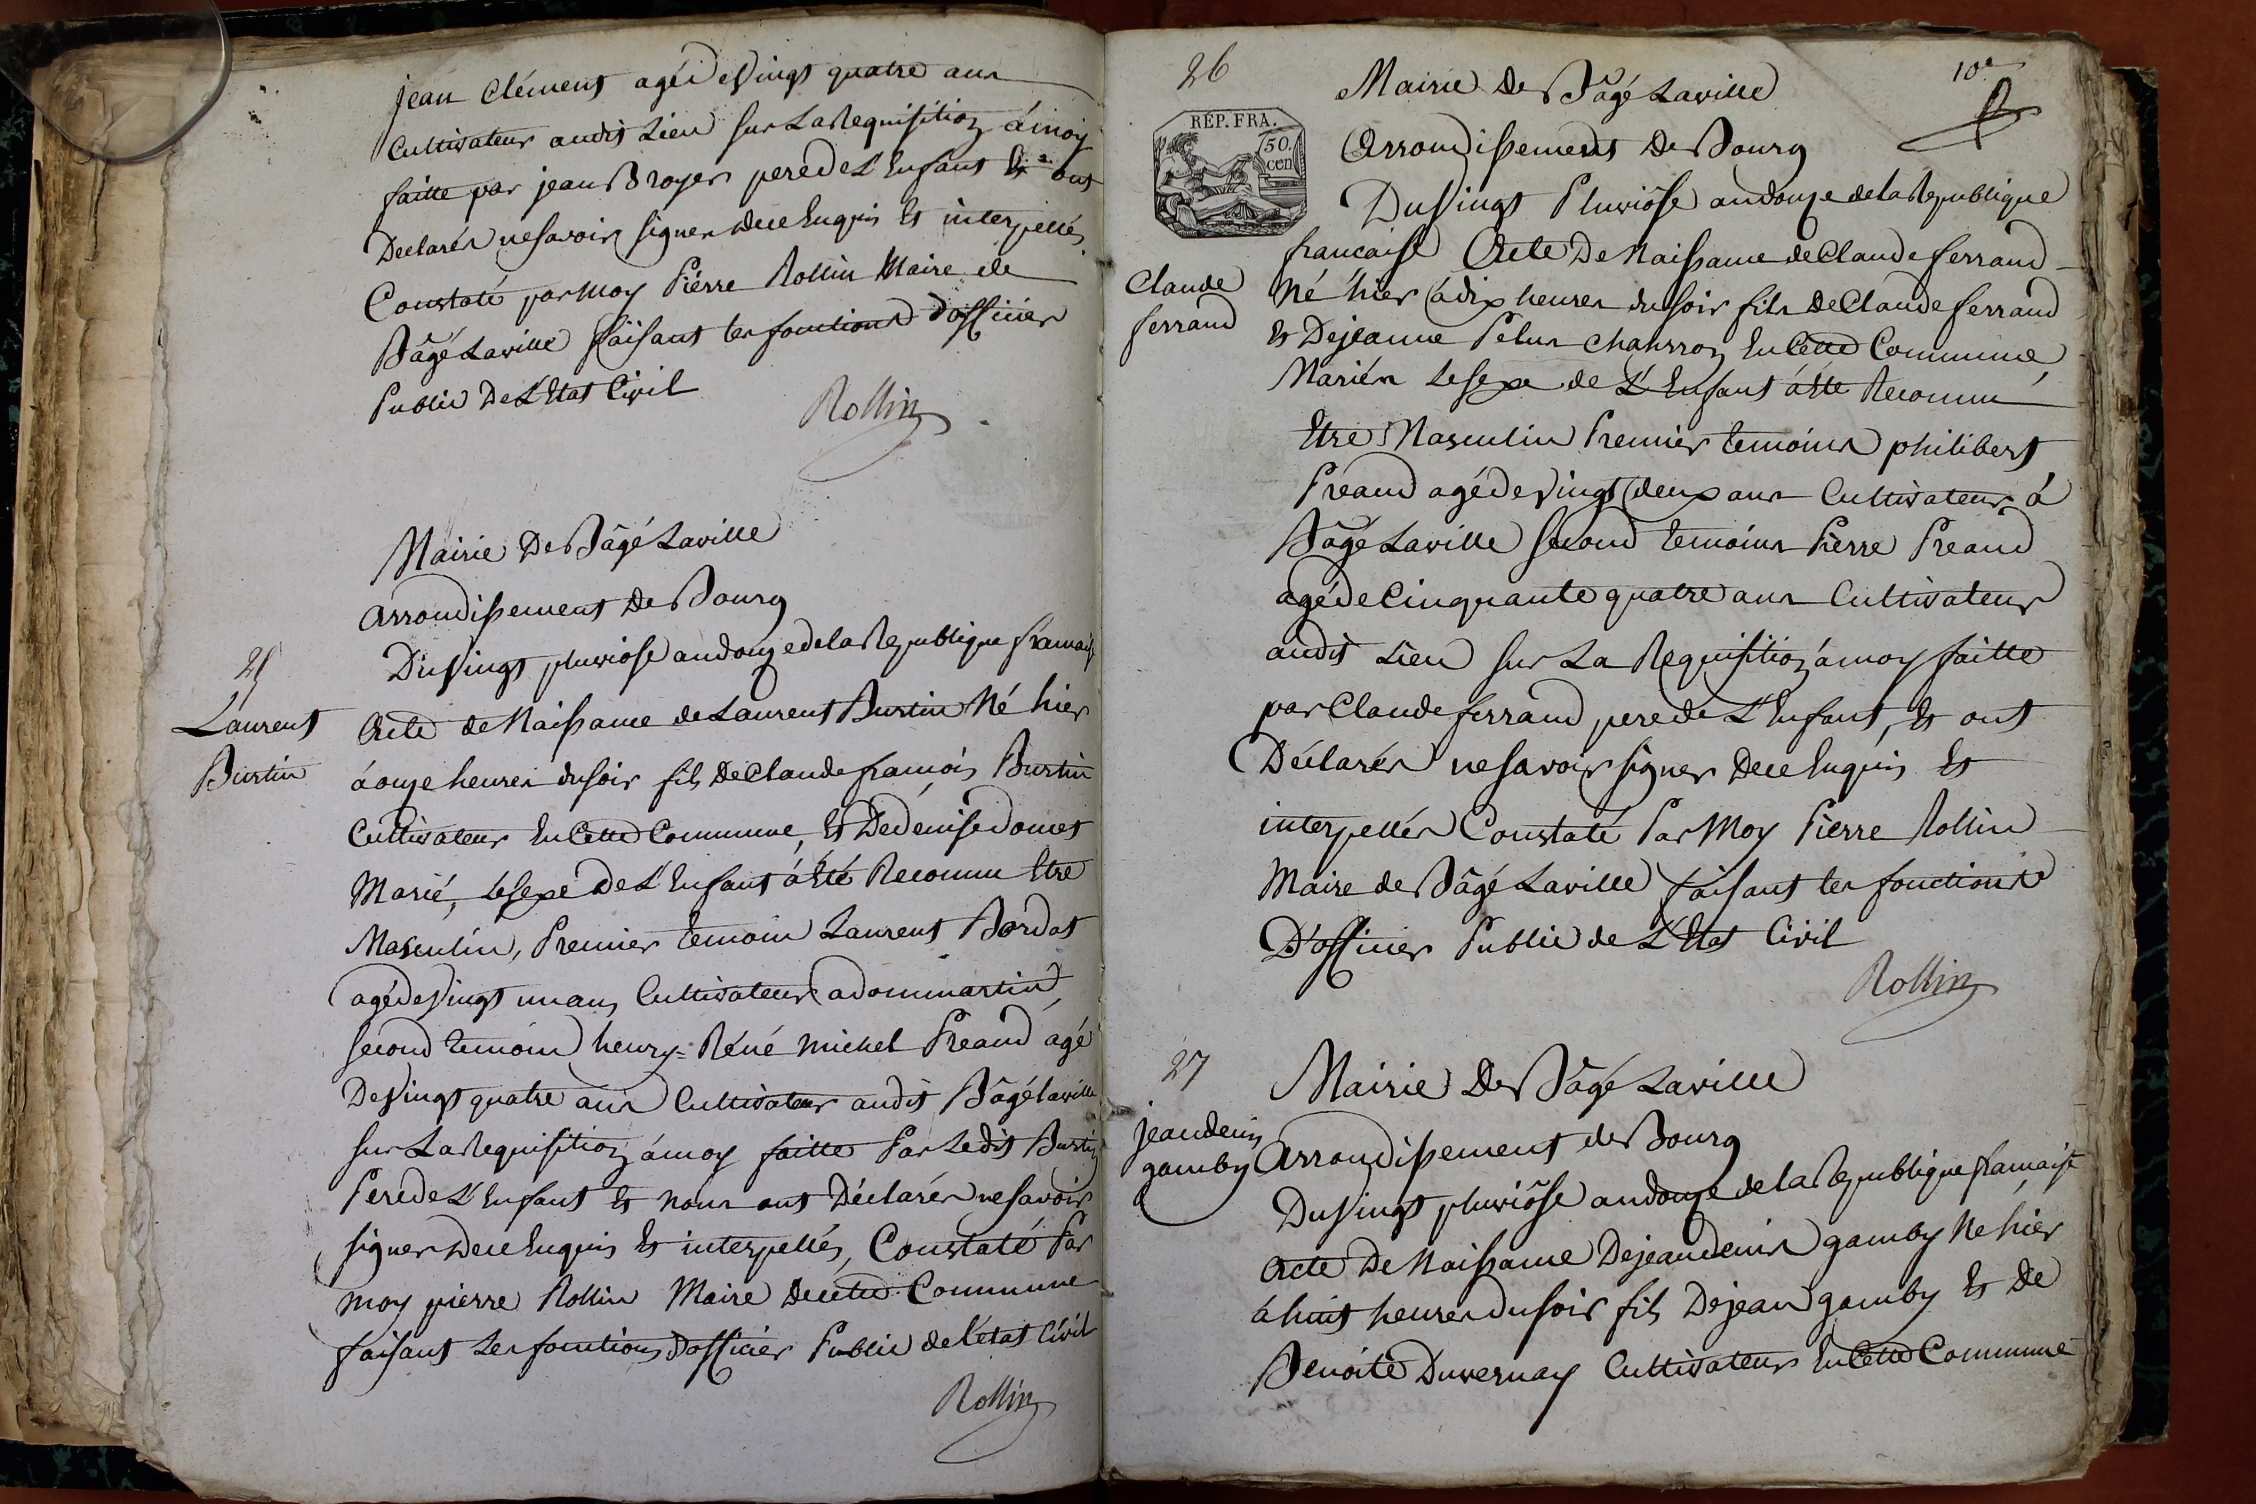 jean Clément agé de Vingt quatre ans
Cultivateur audit Lieu sur La Requisition á moy
faitte par jean Broyer pere de L'Enfant Et ont
Declarés ne savoir signer de ce Enquis Et interpellés
Constaté par Moy Piérre Rollin Maire de
Bâgé Laville faisant les fonctions d'officier
Public De L'Etat Civil
Rollin
Mairie De Bâgé Laville
arrondissement De Bourg
25
Du Vingt pluviose an douze de la Republique francaise
Laurent
Burtin
Acte de Naissance de Laurent Burtin Né hier
á onze heures du soir fils De Claude francois Burtin
Cultivateur En Cette Commune, Et De denise domet
Marié, Le sexe de L'Enfant á Eté Reconnu Etre
Masculin, Premier temoin Laurent Bordat
agé de Vingt un ans Cultivateur a dommartin
second temoin henry=Réné michel Préaud agé
De Vingt quatre ans Cultivateur audit Bâgé laville
sur La Requisition á moy faitte Par Ledit Burtin
Pere de L'Enfant Et nous ont Déclarés ne savoir
signer de ce Enquis Et interpellés, Constaté Par
moy pierre Rollin Maire De cette Commune
faisant Les fonctions D'officier Public de L'état Civil
Rollin
26
10e
Mairie De Bâgé Laville
RÉP. FRA.
50.
cen
Arrondissement De Bourg
Du Vingt Pluviôse an douze de la Republique
francaise Acte De Naissance de Claude ferrand
Claude
ferrand
Né hier á dix heures du soir fils De Claude ferrand
Et De jeanne Pelus charron En Cette Commune,
Mariés Le sexe de L'Enfant á Eté Reconnu
Etre Masculin Premier temoins philibert
Préaud agé de Vingt deux ans Cultivateur á
Bâgé Laville second temoins Piérre Preaud
agé de Cinquante quatre ans Cultivateur
audit Lieu sur La Requisition á moy faitte
par Claude ferrand pere de L'Enfant, Et ont
Déclarés ne savoir signer De ce Enquis Et
interpellés Constaté Par Moy Pierre Rollin
Maire de Bâgé Laville faisant les fonctions
D'officier Public de L'Etat Civil
Rollin
27
Mairie De Bâgé Laville
jean denis
gamby
Arrondissement de Bourg
Du Vingt pluviôse an douze de la Republique francaise
Acte De Naissance De jean denis gamby Né hier
á huit heures du soir fils De jean gamby Et De
Benoite Duvernay Cultivateur En Cette Commune